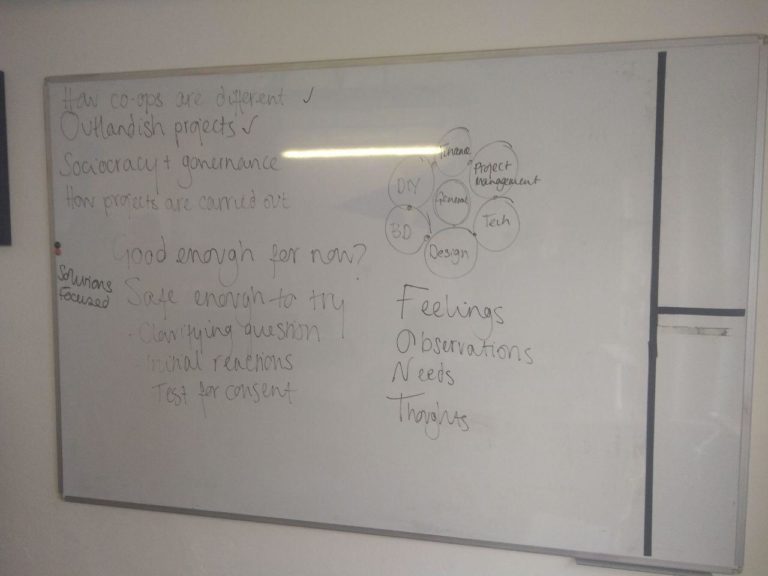 How co-ops are different ✓
Outlandish projects ✓
Sociocracy + governance
How projects are carried out
Good enough for now?
Solutions
focused
Safe enough to try
- Clarifying question
Initial reactions
Test for consent
Finance
Project
Management
DIY
General
BD
Tech
Design
Feelings
Observations
Needs
Thoughts